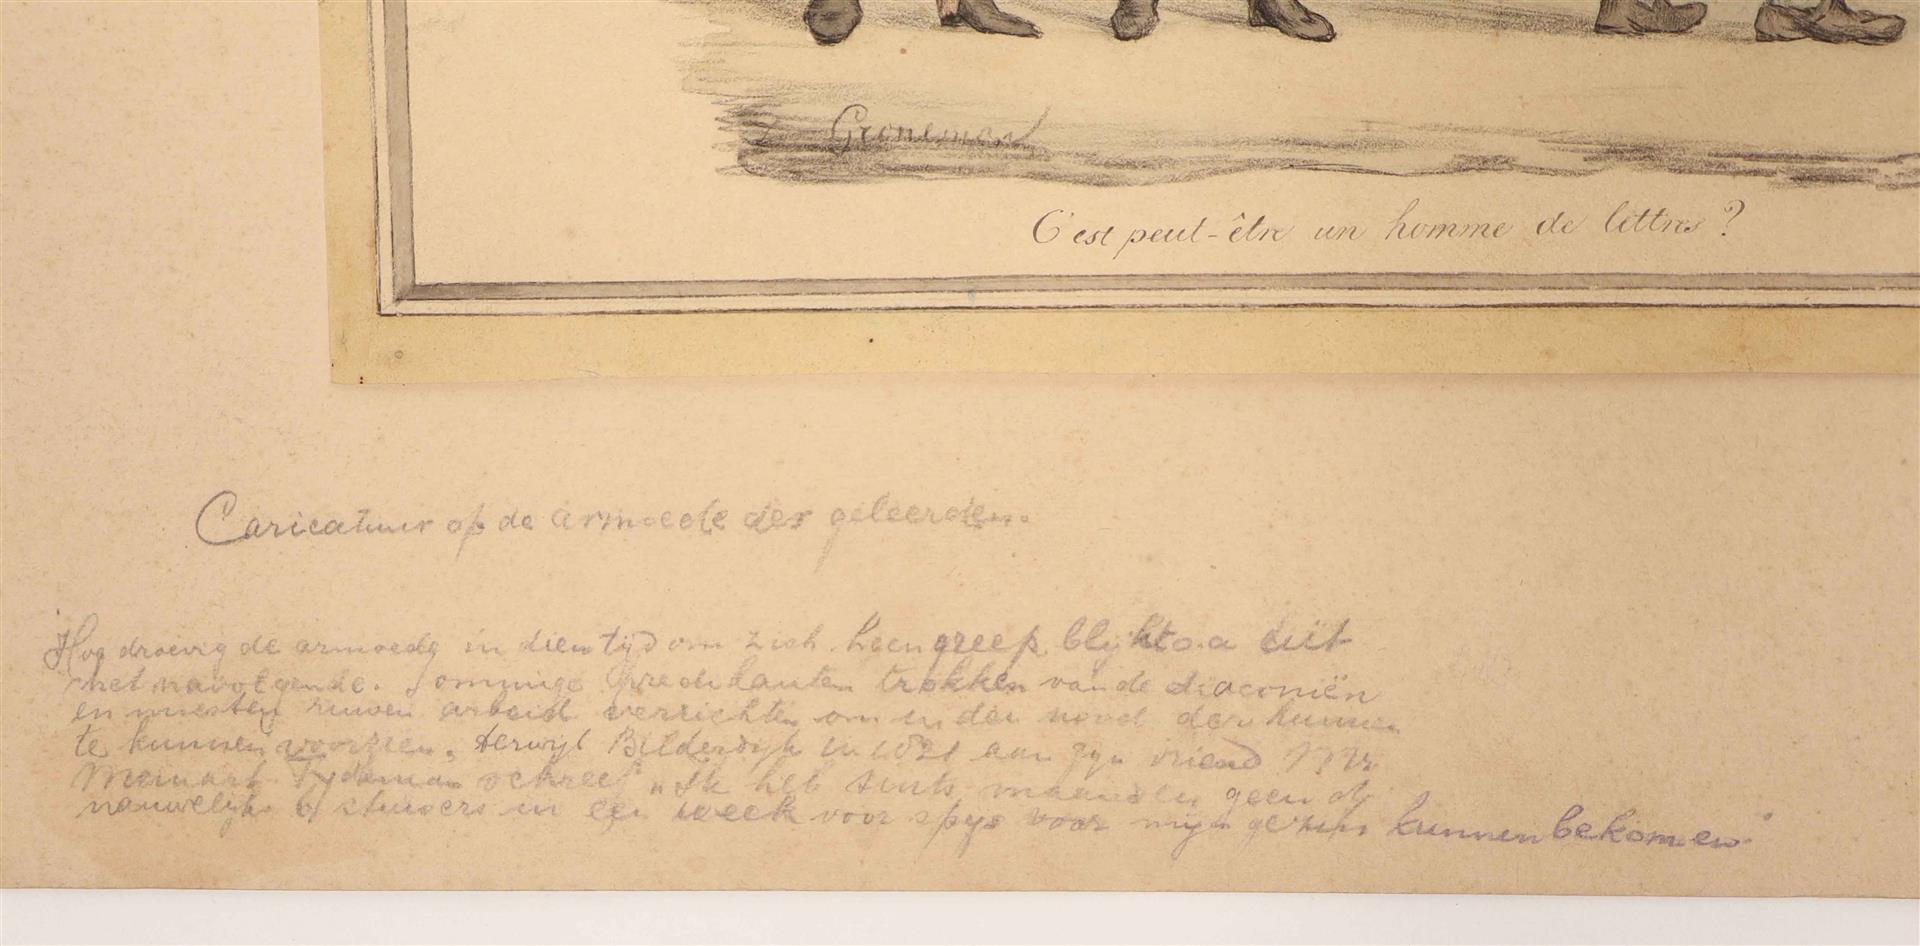 Groneman
C'est peut-être un homme de lettres?
Caricatuur op de armoede der geleerden.
Hoe droevig de armoede in dien tijd om zich heen greep blijkt o.a uit
het navolgende. Sommige predikanten trokken van de diaconiën
en moesten ruwen arbeid verrichten om in den nood der hunnen
te kunnen voorzien, terwijl Bilderdijk in 1821 aan zijn vriend Mr.
Meinart Tydeman schreef "Ik heb sints maanden geen of
nauwelijks 6 stuivers in een week voor spijs voor mijn gezin kunnen bekomen"